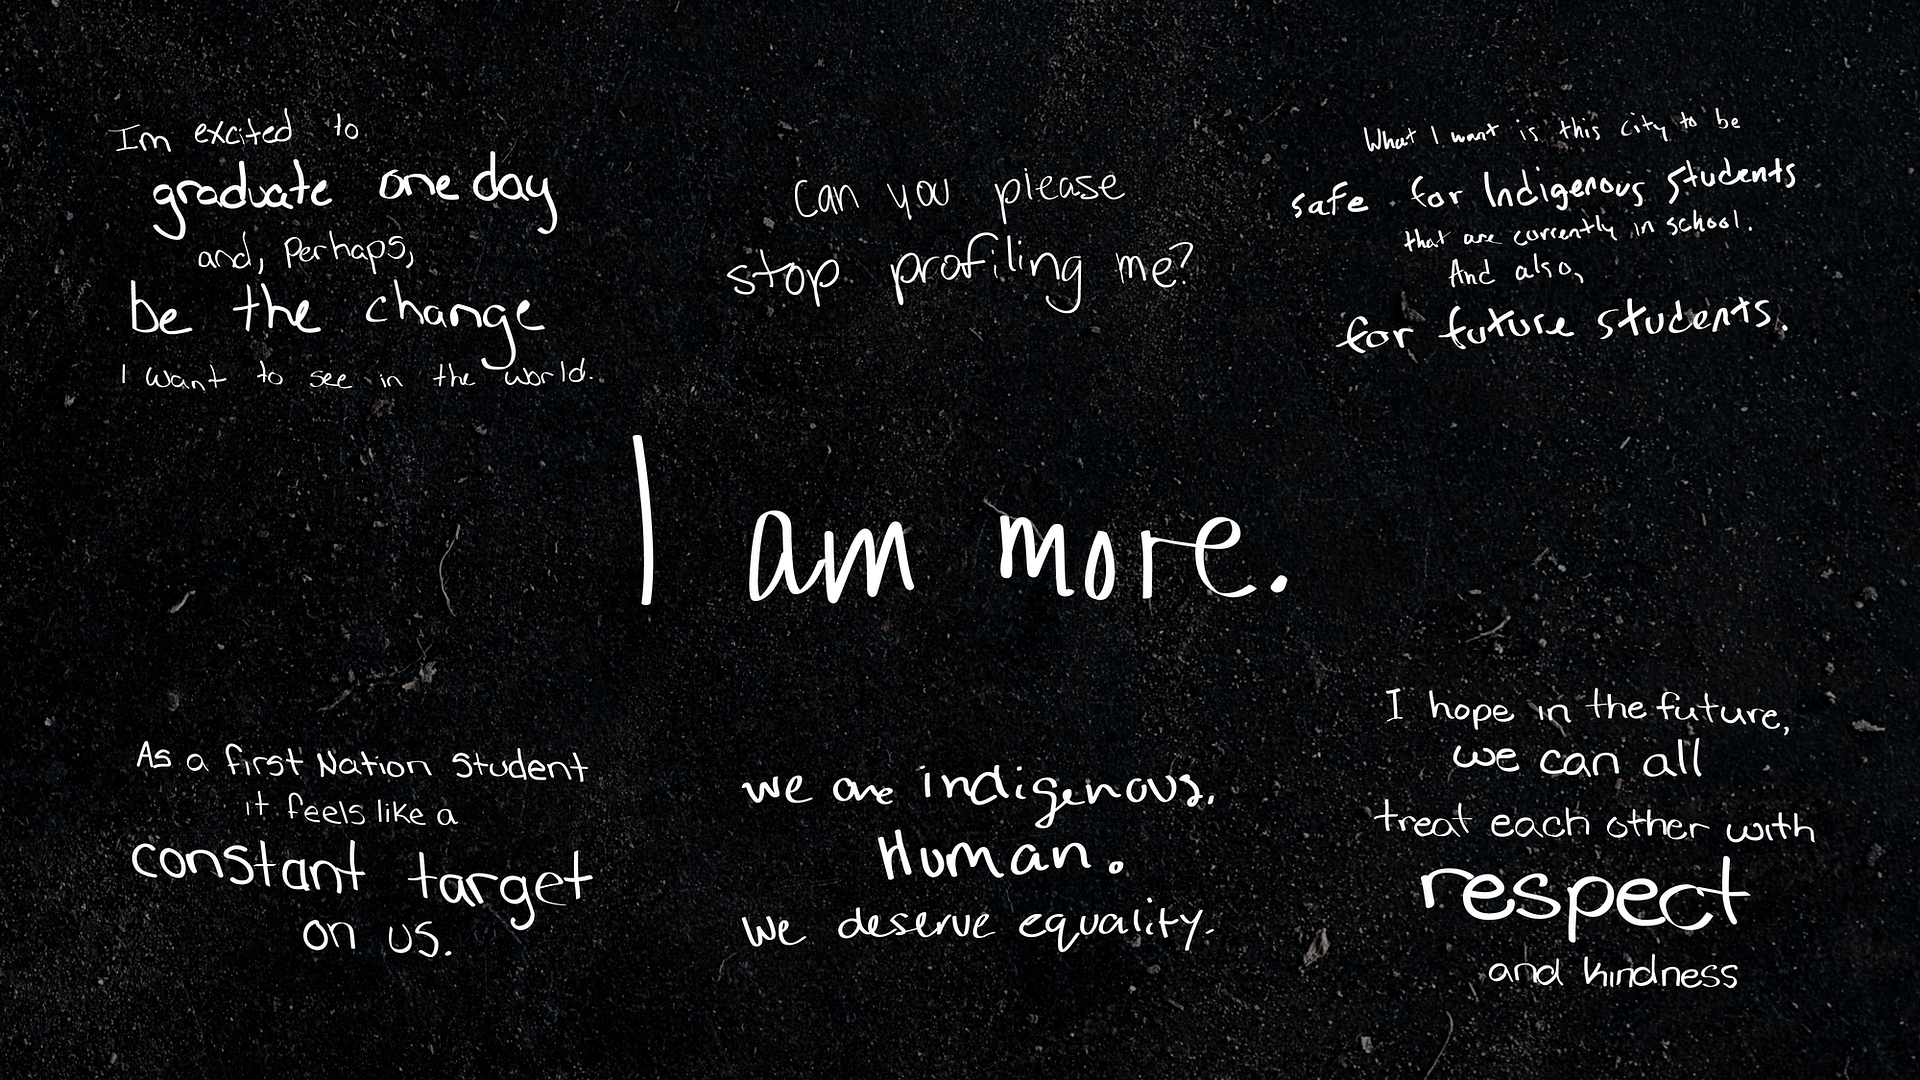 Im excited to
graduate one day
and, Perhaps,
be the change
I want to see in the world.
Can you please
stop profiling me?
What I want is this city to be
safe for Indigenous students
that are currently in school.
And also,
for future students.
I am more.
As a first Nation Student
it feels like a
constant target
on us.
we are indigenous.
Human.
We deserve equality.
I hope in the future,
we can all
treat each other with
respect
and kindness